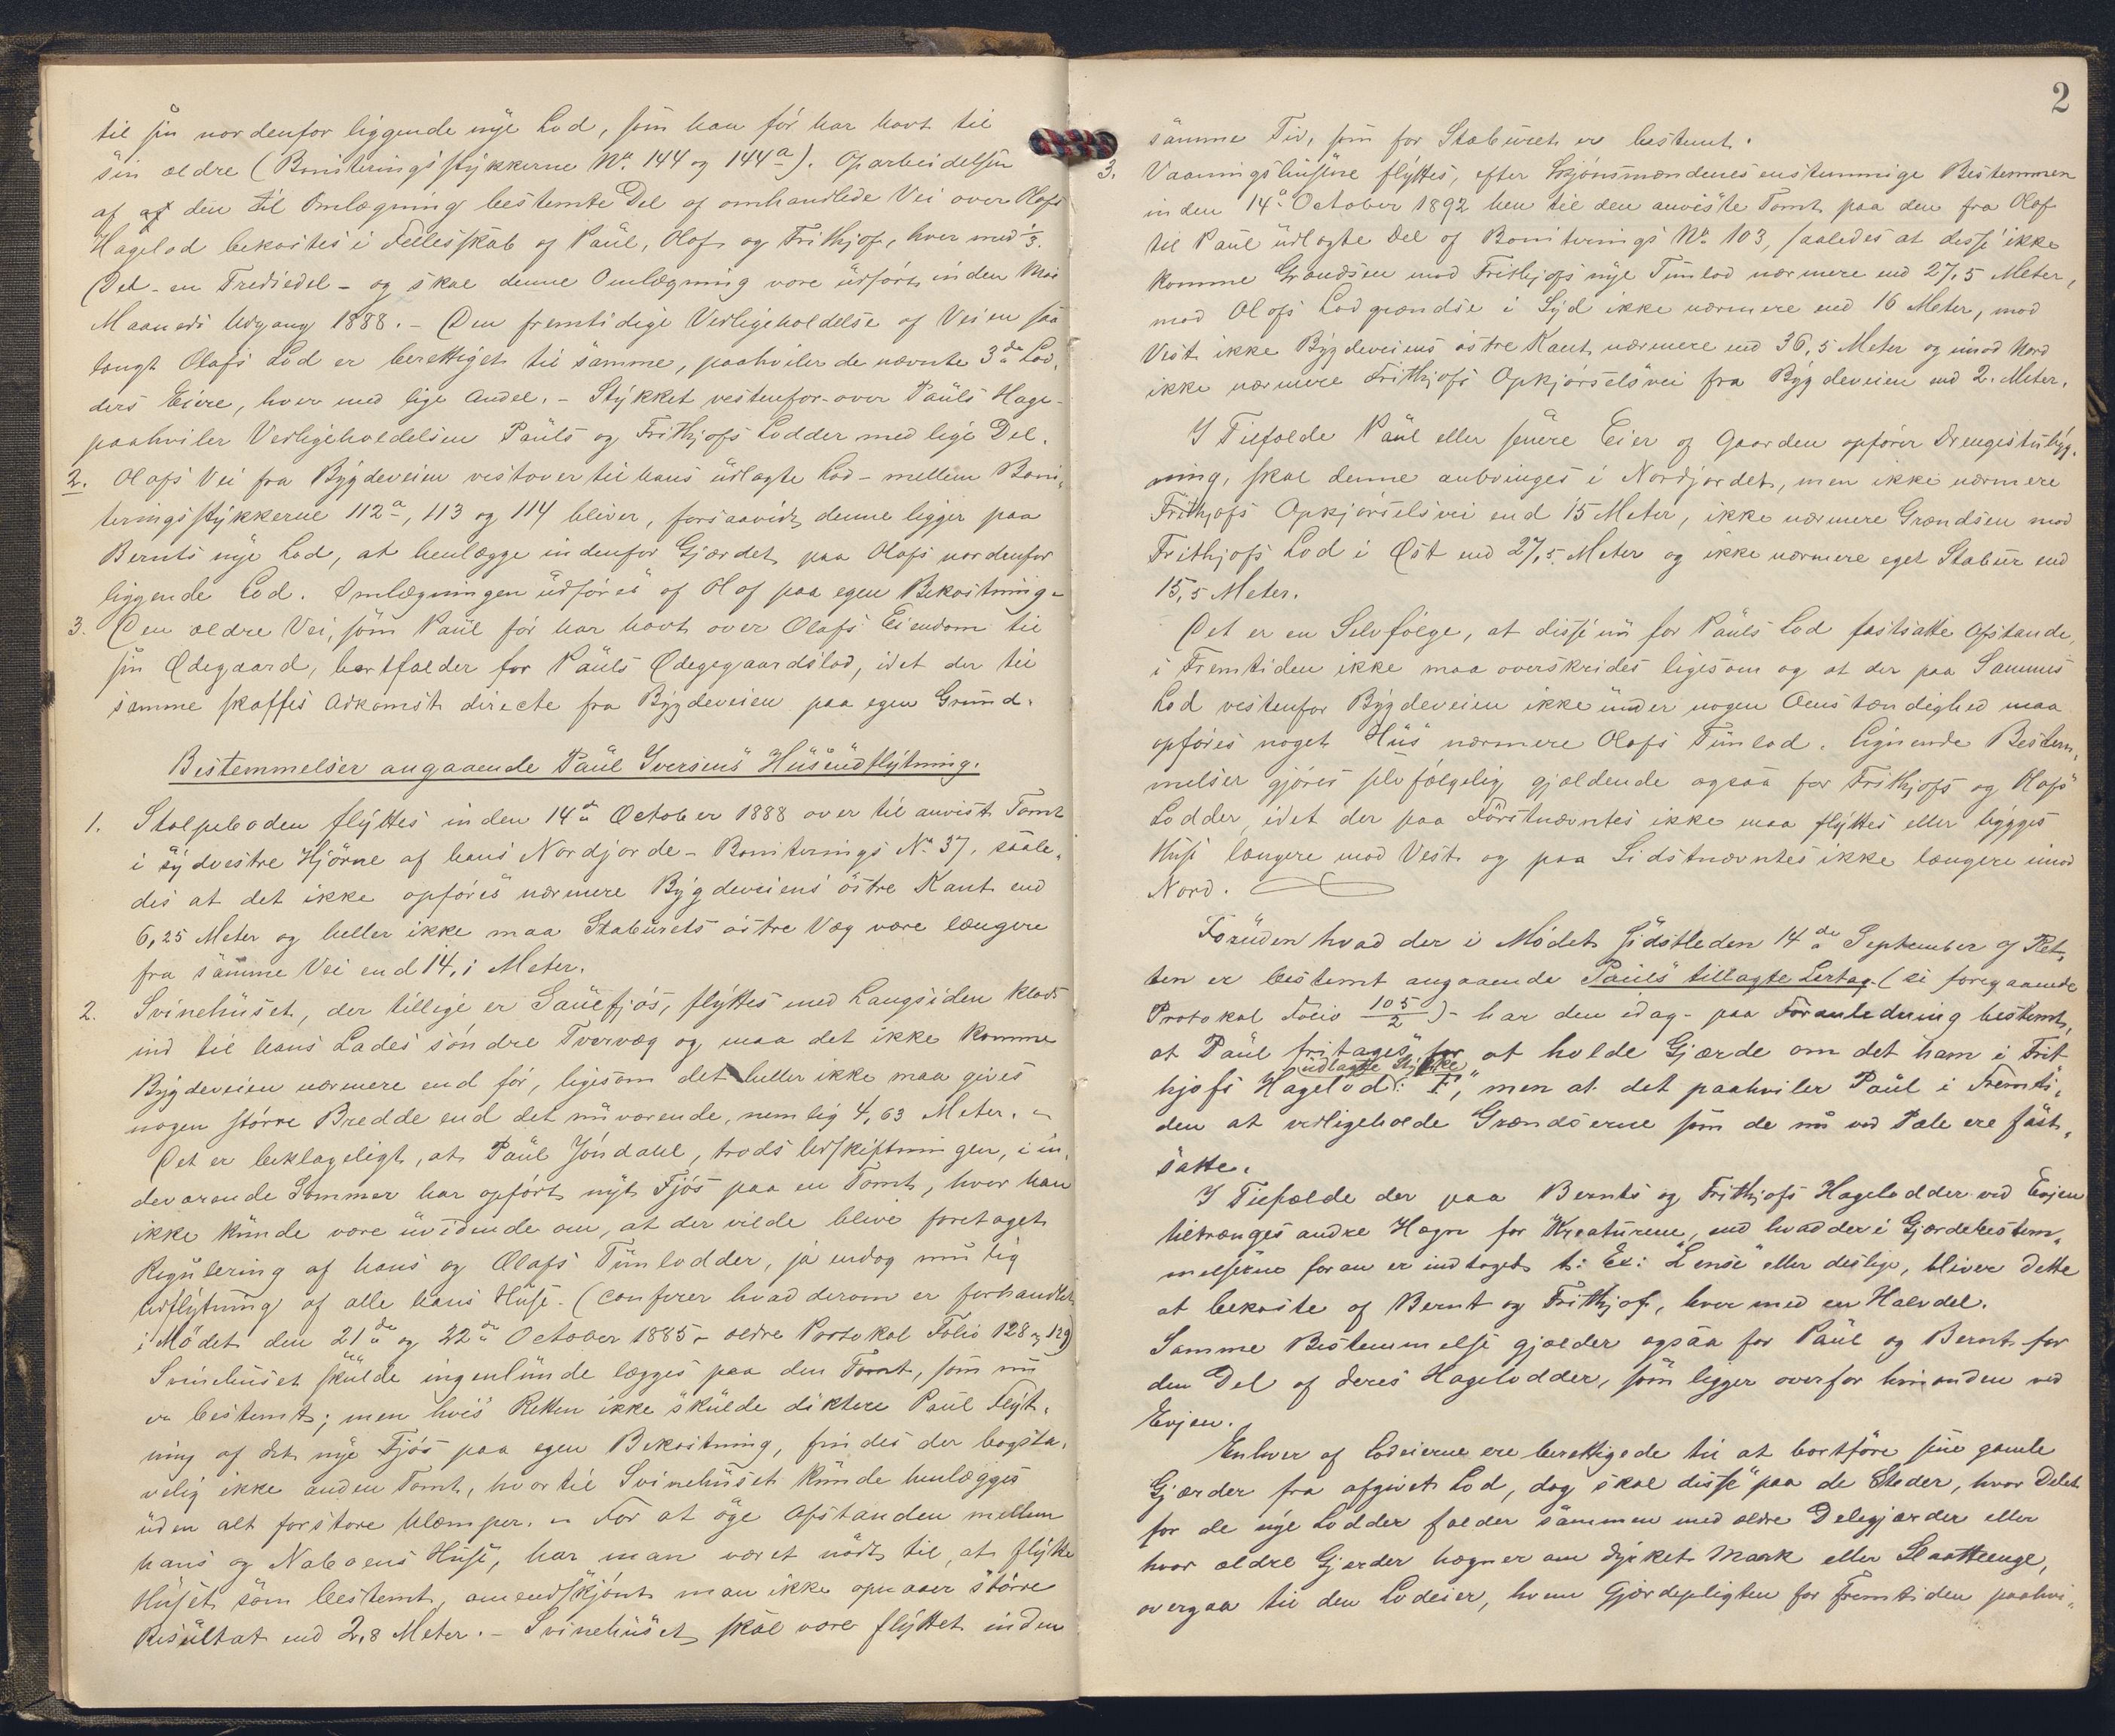 til sin nordenfor liggende nye Lod, som han før har havt til
sin ældre (Boniteringsstykkerne No. 144 og 144a). Oparbeidelsen
af af den til Omlægning bestemte Del af omhandlede Vei over Olafs
Hagelod bekostes i Fællesskab af Paul, Olaf og Frithjof, hver med 1/3.
Del - en Trediedel - og skal denne Omlægning være udført inden Mai
Maaneds Udgang 1888. - Den fremtidige Vedligeholdelse af Veien saa
langt Olafs Lod er berettiget til samme, paahviler de nævnte 3de Lod-
ders Eiere, hver med lige Andel. - Stykket vestenfor - over Pauls Hage -
paahviler Vedligeholdelsen Pauls og Frithjofs Lodder med lige Del.
2. Olafs Vei fra Bygdeveien vestover til hans udlagte Lod - mellem Boni-
teringsstykkerne 112a, 113 og 114 bliver, forsaavidt denne ligger paa
Bernts nye Lod, at henlægge indenfor Gjærdet paa Olafs nordenfor
liggende Lod. Omlægningen udføres af Olaf paa egen Bekostning -
3. Den ældre Vei, som Paul før har havt over Olafs Eiendom til
sin Ødegaard, bortfalder for Pauls Ødegaardslod, idet der til
samme skaffes Adkomst directe fra Bygdeveien paa egen Grund.
Bestemmelser angaaende Paul Iversens Husudflytning.
1. Stolpeboden flyttes inden 14de October 1888 over til anvist Tomt
i sydvestre Hjørne af hans Nordjorde - Boniterings No. 37, saale-
des at det ikke opføres nærmere Bygdeveiens østre Kant end
6,25 Meter og heller ikke maa Staburets østre Væg være længere
fra samme Vei end 14,1 Meter.
2. Svinehuset, der tillige er Sauefjøs, flyttes med Langsiden klods
ind til hans Lades søndre Tvervæg og maa det ikke komme
Bygdeveien nærmere end før, ligesom det heller ikke maa gives
nogen større Bredde end det nuværende, nemlig 4,63 Meter. -
Det er beklageligt, at Paul Jøndahl, trods Udskiftningen, i in-
deværende Sommer har opført nyt Fjøs paa en Tomt, hvor han
ikke kunde være uvidende om, at der vilde blive foretaget
Regulering af hans og Olafs Tunlodder, ja endog mulig
Udflytning af alle hans Huse. (conferer hvad derom er forhandlet
i Mødet den 21de og 22de October 1885 - ældre Protokol Folio 128 og 129)
Svinehuset skulde ingenlunde lægges paa den Tomt, som nu
er bestemt; men hvis Retten ikke skulde diktere Paul Flyt-
ning af det nye Fjøs paa egen Bekostning, findes der bogsta-
velig ikke anden Tomt, hvortil Svinehuset kunde henlægges
uden alt forstore Ulæmper. - For at øge Afstanden mellem
hans og Naboens Huse, har man været nødt til, at flytte
Huset som bestemt, omendskjønt man ikke opnaaer større
Resultat end 2,8 Meter. - Svinehuset skal være flyttet inden
2
samme Tid, som for Staburet er bestemt.
3. Vaaningshusene flyttes, efter Skjønsmændenes enstemmige Bestemmen
inden 14de October 1892 hen til den anviste Tomt paa den fra Olaf
til Paul udlagte Del af Boniterings No. 103, saaledes at disse ikke
komme Grændsen mod Frithjofs nye Tunlod nærmere end 27,5 Meter,
mod Olafs Lodgrændse i Syd ikke nærmere end 16 Meter, mod
Vest ikke Bygdeveiens østre Kant nærmere end 36,5 Meter og imod Nord
ikke nærmere Frithjofs Opkjørselsvei fra Bygdeveien end 2. Meter.
I Tilfælde Paul eller senere Eier af Gaarden opfører Drengestubyg-
ning, skal denne anbringes i Nordjordet, men ikke nærmere
Frithjofs Opkjørselsvei end 15 Meter, ikke nærmere Grændsen mod
Frithjofs Lod i Øst end 27,5 Meter og ikke nærmere eget Stabur end
15,5 Meter.
Det er en Selvfølge, at disse nu for Pauls Lod fastsatte Afstande,
i Fremtiden ikke maa overskrides ligesom og at der paa Sammes
Lod vestenfor Bygdeveien ikke under nogen Omstændighed maa
opføres noget Hus nærmere Olafs Tunlod. Lignende Bestem-
melser gjøres selvfølgelig gjældende ogsaa for Frithjofs og Olafs
Lodder, idet der paa Førstnævntes ikke maa flyttes eller bygges
Huse længere mod Vest og paa Sidstnævntes ikke længere imod
Nord.
Foruden hvad der i Mødet sidstleden 14de September af Ret-
ten er bestemt angaaende Pauls tillagte Lertag (se foregaaende
Protokol Folio 105/2) - har den idag - paa Foranledning bestemt,
at Paul fritages for at holde Gjærde om det ham i Frit-
hjofs Hagelod udlagte Stykke: F, men at det paahviler Paul i Fremti-
den at vedligeholde Grændserne som de nu ved Pæle ere fast-
satte.
I Tilfælde der paa Bernts og Frithjofs Hagelodder ved Evjen
tiltrænges andre Hegn for Kreaturene, end hvad der i Gjærdebestem-
melserne foran er indtaget t: Ex: "Lense" eller deslige, bliver dette
at bekoste af Bernt og Frithjof, hver med en Halvdel.
Samme Bestemmelse gjælder ogsaa for Paul og Bernt for
den Del af deres Hagelodder, som ligger overfor hinanden ved
Evjen.
Enhver af Lodeierne ere berettigede til at bortføre sine gamle
Gjærder fra afgivet Lod, dog skal disse paa de Steder, hvor Delet
for de nye Lodder falder sammen med ældre Delegjærder eller
hvor ældre Gjerder hegner om dyrket Mark eller Slaatteenge,
overgaa til den Lodeier, hvem Gjærdepligten for Fremtiden paahvi-